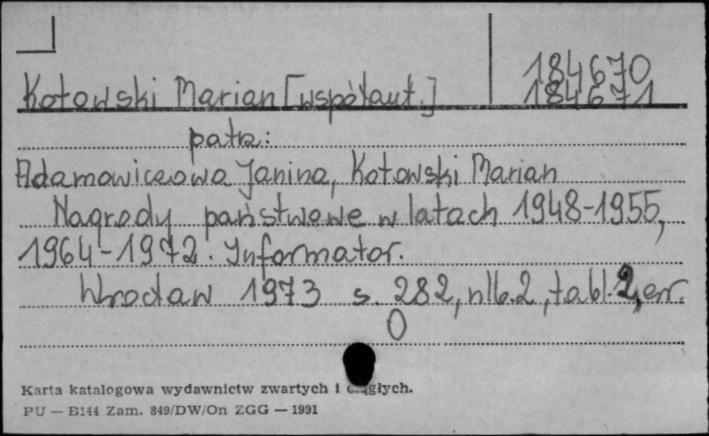 184670
Kotowski Marian [współaut.] 184671
patrz:
Adamowiczowa Janina, Kotowski Marian
Nagrody państwowe w latach 1948-1955,
1964-1972. Informator.
Wrocław 1973 s. 282, nlb. 2, tabl. 2, err.
0
Karta katalogowa wydawnictw zwartych i ciągłych.
PU — B144 Zam. 849/DW/On ZGG — 1991